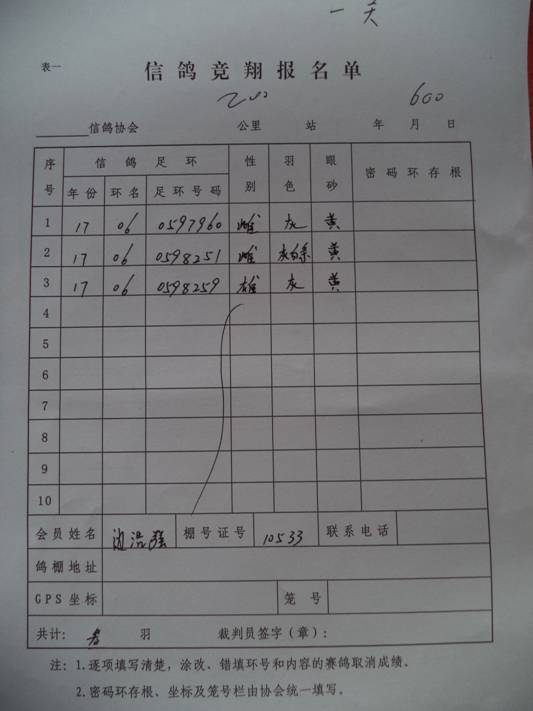 一天
表一
信鸽竞翔报名单
200 600
信鸽协会 公里 站 年 月 日
序号 信鸽足环 性别 羽色 眼砂 密码环存根
年份 环名 足环号码
1 17 06 0597960 雌 灰 黄
2 17 06 0598251 雌 灰白条 黄
3 17 06 0598259 雄 灰 黄
4
5
6
7
8
9
10
会员姓名 边浩强 棚号证号 10533 联系电话
鸽棚地址
GPS坐标 笼号
共计: 羽 裁判员签字(章):
注: 1.逐项填写清楚,涂改、错填环号和内容的赛鸽取消成绩。
2.密码环存根、坐标及笼号栏由协会统一填写。